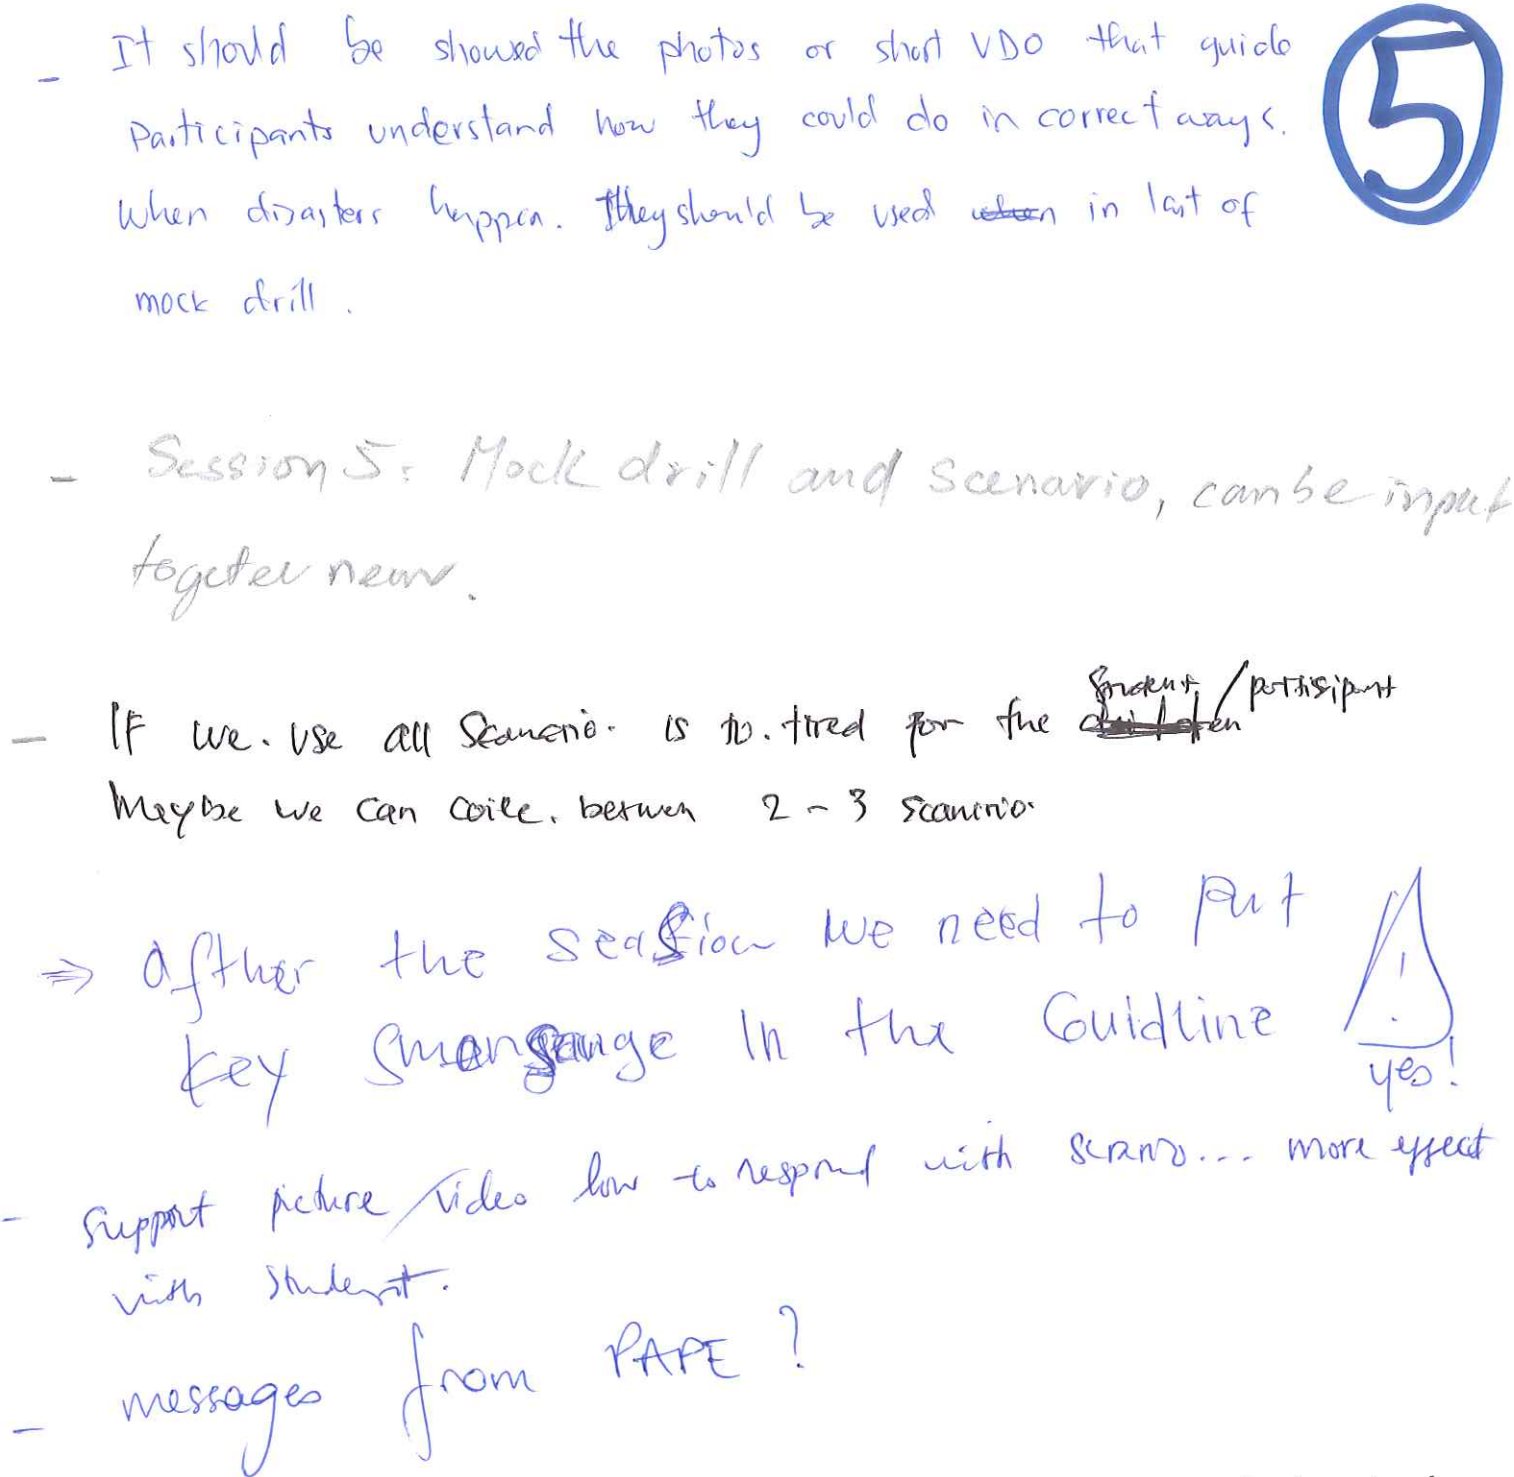 - It should be showed the photos or short VDO that guide
Participants understand how they could do in correct ways.
When disasters happen. They should be used when in last of
mock drill.
5
- Session 5: Mock drill and scenario, can be input
togeter
- If we. use all Scanerio. is to. tired for the student / partisipant
Maybe we can 2 - 3 scanirio.
⇒ after the we need to put
key in the Guidline
! yes!
- support picture/video how to respond with ... more effect
with student.
- messages from PAPE?